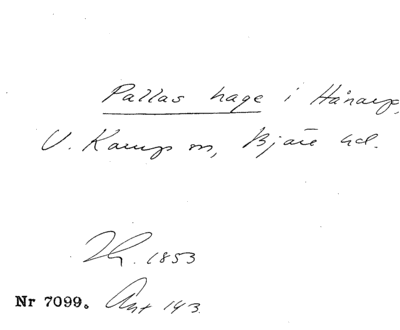 Pallas hage i Hånarp,
V. Karup sn, Bjäre hd.
Th. 1853
Nr 7099. Ant 143.